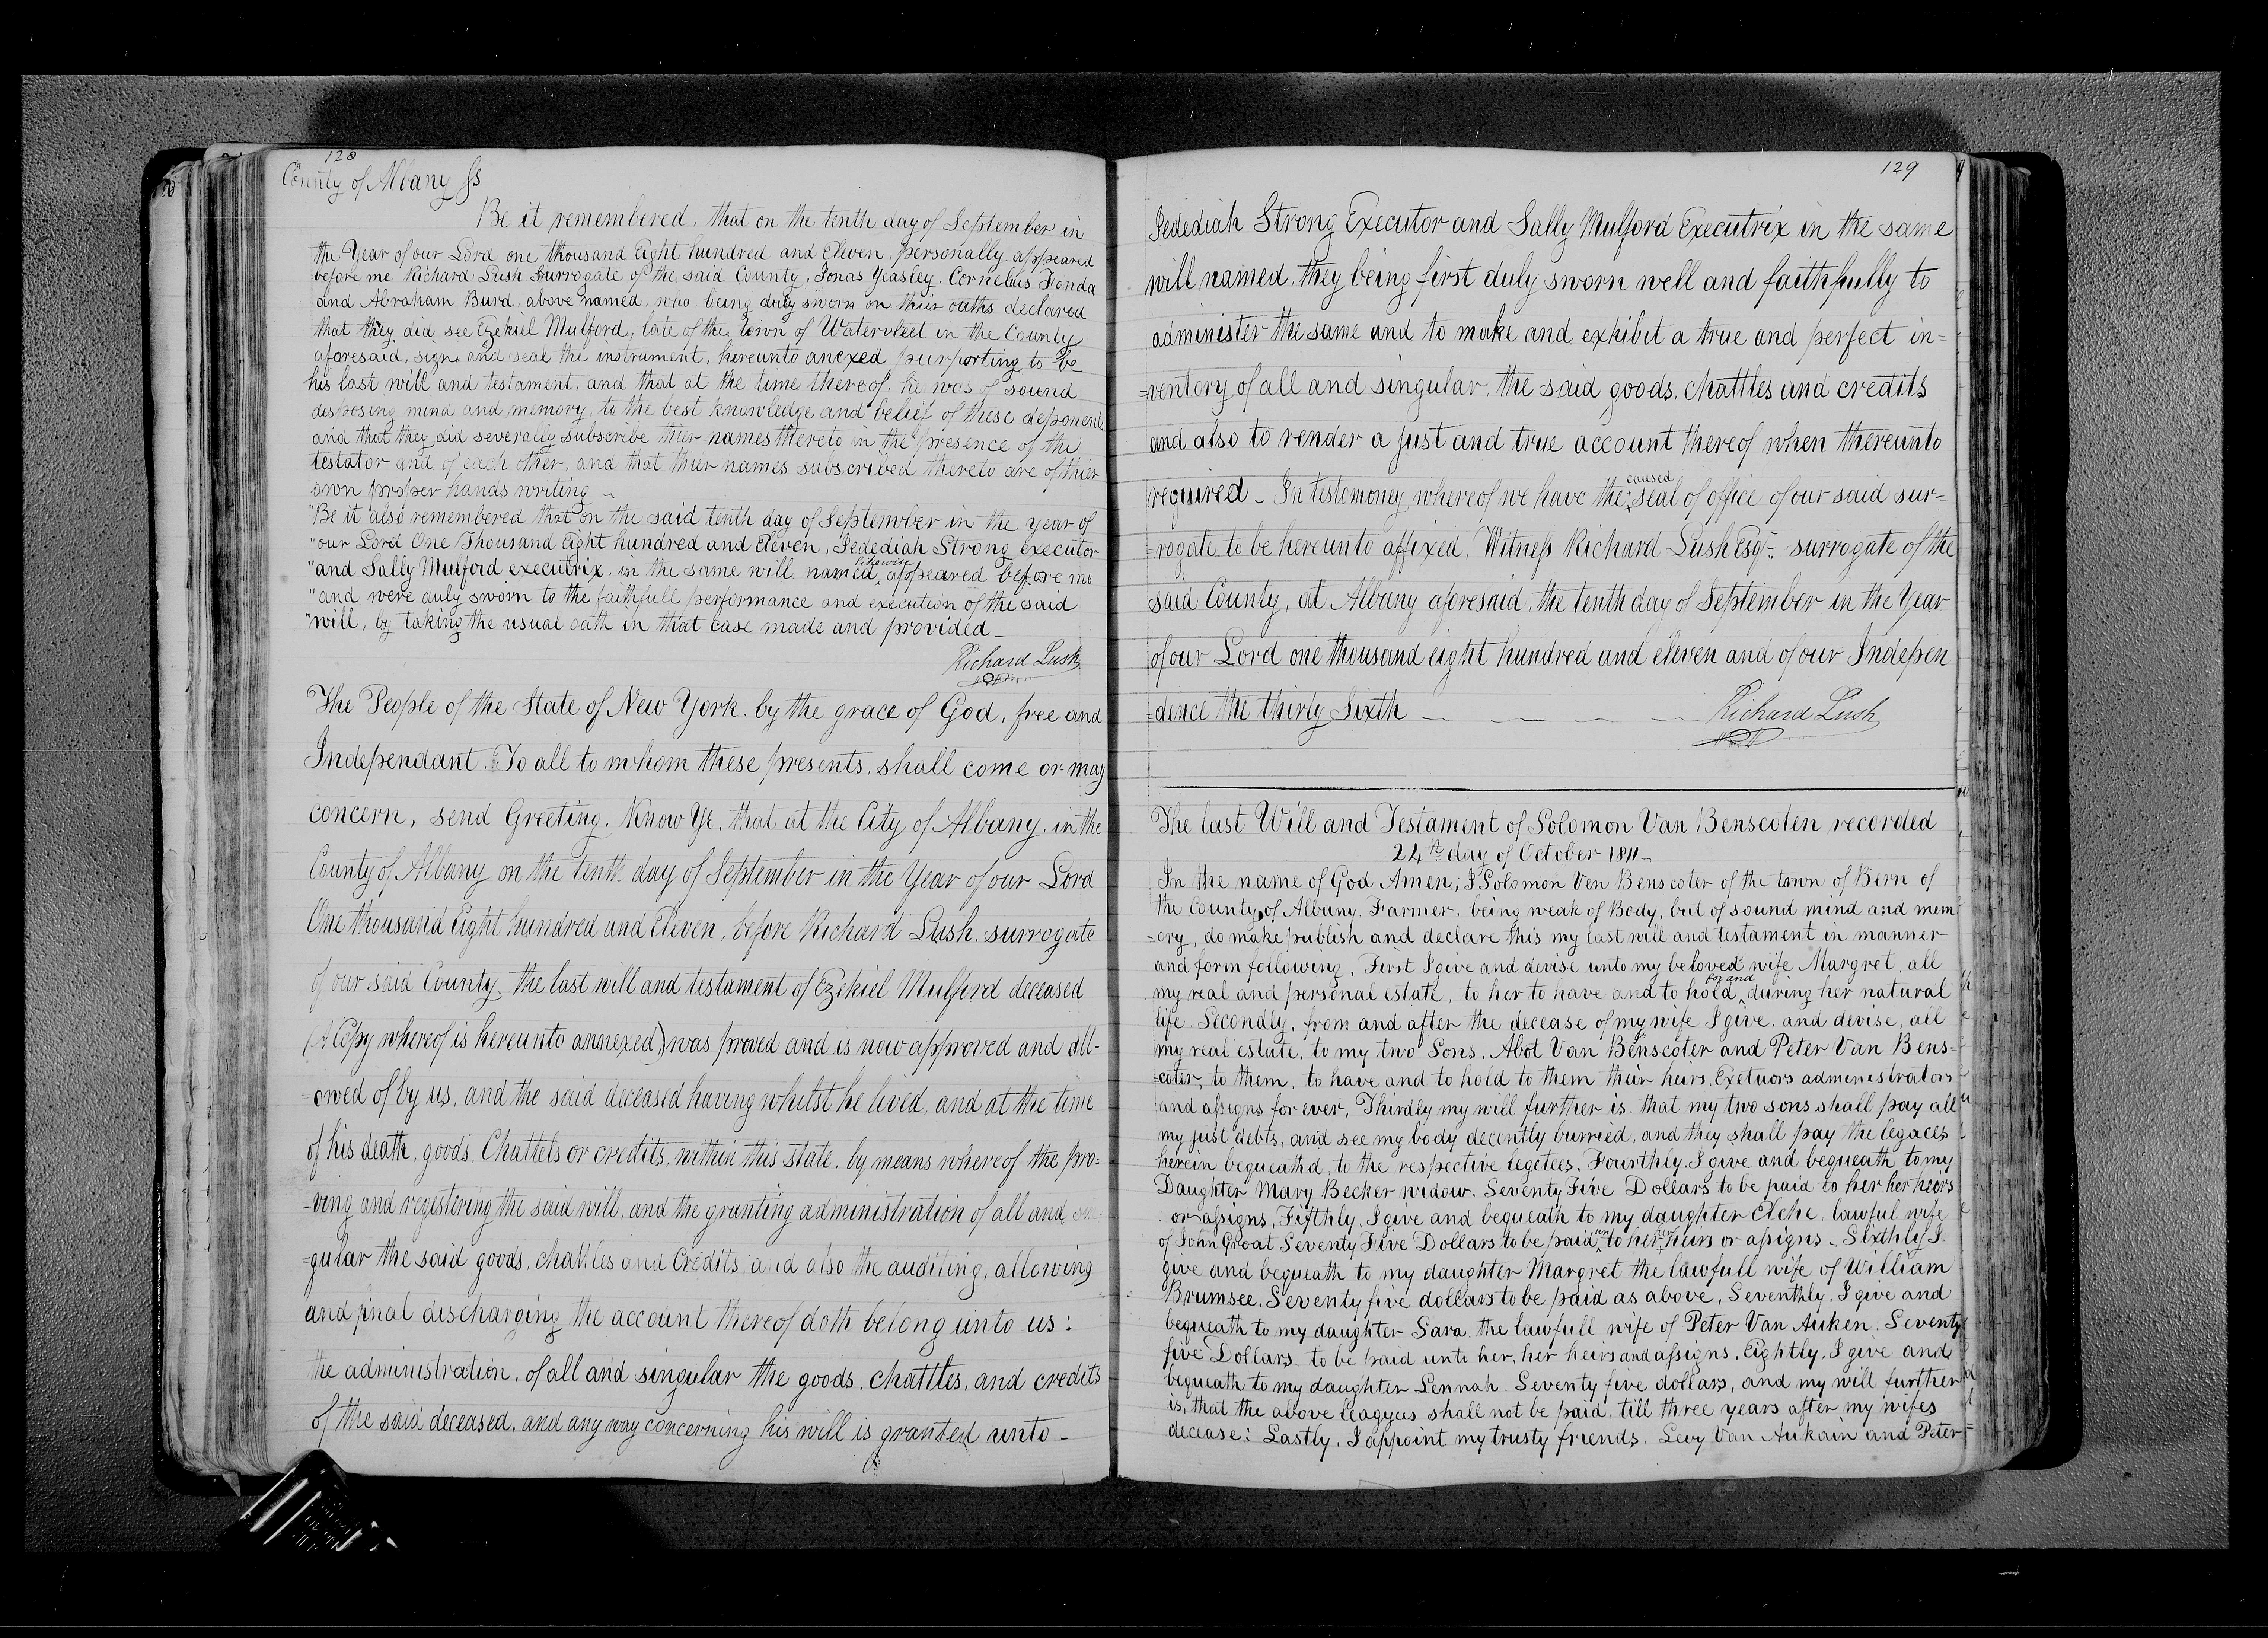 128
County of Albany ss
Be it remembered, that on the tenth day of September in
the Year of our Lord one thousand Eight hundred and Eleven, personally appeared
before me Richard Lush Surrogate of the said County, Jonas Yeasley, Cornelius Fonda
and Abraham Burd, above named, who being duly sworn on their oaths declared
that they did see Ezekiel Mulford, late of the town of Watervleet in the County
aforesaid, sign and seal the instrument, hereunto anexed purporting to be
his last will and testament, and that at the time thereof, he was of sound
disposing mind and memory, to the best knowledge and belief of these deponents
and that they did severally subscribe thier names thereto in the presence of the
testator and of each other, and that thier names subscribed thereto are of thier
own proper hands writing ~
"Be it also remembered that on the said tenth day of September in the year of
"our Lord One Thousand Eight hundred and Eleven, Jedediah Strong executor
"and Sally Mulford executrix, in the same will named, likewise appeared before me
"and were duly sworn to the faithfull performance and execution of the said
"will, by taking the usual oath in that case made and provided _
Richard Lush
The People of the State of New York, by the grace of God, free and
Independant. To all to whom these presents, shall come or may
concern, send Greeting. Know Ye, that at the City of Albany, in the
County of Albany on the tenth day of September in the Year of our Lord
One thousand Eight hundred and Eleven, before Richard Lush, surrogate
of our said County, the last will and testament of Ezikiel Mulford deceased
(A Copy whereof is hereunto annexed) was proved and is now approved and all-
=owed of by us, and the said deceased having whilst he lived, and at the time
of his death, goods, Chattels or credits, within this state, by means whereof the pro=
-ving and registering the said will, and the granting administration of all and sin-
=gular the said goods, chattles and Credits and also the auditing, allowing
and final discharging the account thereof doth belong unto us:
the administration, of all and singular the goods, chattles, and credits
of the said deceased, and any way concerning his will is granted unto _
129
Jedediah Strong Executor and Sally Mulford Executrix in the same
will named, they being first duly sworn well and faithfully to
administer the same and to make and exhibit a true and perfect in=
=ventory of all and singular, the said goods, chattles and credits
and also to render a just and true account thereof when thereunto
required _ In testemoney whereof we have the caused seal of office of our said sur=
=rogate to be hereunto affixed, Witness Richard Lush Esqr. surrogate of the
said County, at Albany aforesaid, the tenth day of September in the Year
of our Lord one thousand eight hundred and eleven and of our Indepen
=dence the thirty Sixth _ _ _ _ _ Richard Lush
The last Will and Testament of Solomon Van Benscoten recorded
24th day of October 1811_
In the name of God Amen; I Solomon Van Benscoter of the town of Bern of
the County of Albany, Farmer, being weak of Body, but of sound mind and mem
=ory, do make publish and declare this my last will and testament in manner
and form following, First I give and devise unto my beloved wife Margret, all
my real and personal estate, to her to have and to hold for and during her natural
life. Secondly, from and after the decease of my wife I give, and devise, all
my real estate, to my two Sons, Abot Van Benscoter and Peter Van Bens=
=coter, to them, to have and to hold to them thier heirs, Exetuors administrators
and assigns for ever, Thirdly my will further is, that my two sons shall pay all
my just debts, and see my body decently burried, and they shall pay the legaces
herein bequeathd, to the respective legetees. Fourthly. I give and bequeath to my
Daughter Mary Becker widow. Seventy Five Dollars to be paid to her her heirs
or assigns, Fifthly, I give and bequeath to my daughter Elche, lawful wife
of John Groat Seventy Five Dollars to be paid un to her her heirs or assigns _ Sixthly I
give and bequeath to my daughter Margret the lawfull wife of William
Brumsee, Seventy five dollars to be paid as above, Seventhly, I give and
bequeath to my daughter Sara, the lawfull wife of Peter Van Auken. Seventy
five Dollars to be paid unto her, her heirs and assigns, Eightly, I give and
bequeath to my daughter Lennah Seventy five dollars, and my will further
is, that the above leagyes shall not be paid, till three years after my wifes
decease: Lastly, I appoint my trusty friends, Levy Van Aukain and Peter